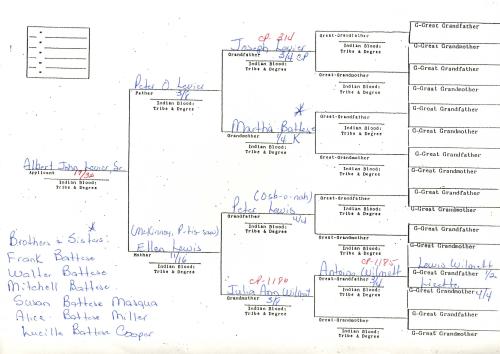 G-Great Grandfather
CP 314
Joseph Levier
Great-Grandfather
Grandfather
3/4 CP
Indian Blood:
Tribe & Degree
Indian Blood:
Tribe & Degree
G-Great Grandmother
G-Great Grandfather
Great-Grandmother
Indian Blood:
Tribe & Degree
G-Great Grandmother
Peter O. Levier
Father
3/8
Indian Blood:
Tribe & Degree
G-Great Grandfather
Great-Grandfather
Indian Blood:
Tribe & Degree
G-Great Grandmother
Martha Battese
Grandmother
1/4 K
Indian Blood:
Tribe & Degree
G-Great Grandfather
Great-Grandmother
Indian Blood:
Tribe & Degree
G-Great Grandmother
Albert John Levier, Sr
Applicant
Indian Blood:
Tribe & Degree
G-Great Grandfather
Great-Grandfather
Indian Blood:
Tribe & Degree
G-Great Grandmother
(Osh-o-nah)
Peter Lewis
Grandfather
4/4
Indian Blood:
Tribe & Degree
G-Great Grandfather
Great-Grandmother
Indian Blood:
Tribe & Degree
G-Great Grandmother
(McKinney, P-tis-saw)
Ellen Lewis
Mother
11/16
Indian Blood:
Tribe & Degree
CP-1185
Antoine Wilmett
Great-Grandfather
Indian Blood:
Tribe & Degree
Louis Wilmett
G-Great Grandfather
1/2
Lizette
G-Great Grandmother
4/4
CP-1180
Julia Ann Wilmet
Grandmother
3/8
Indian Blood:
Tribe & Degree
Great-Grandmother
Indian Blood:
Tribe & Degree
G-Great Grandfather
G-Great Grandmother
Brothers & Sisters:
Frank Battese
Walter Battese
Mitchell Battese
Susan Battese Masqua
Alice Battese Miller
Lucille Battese Cooper